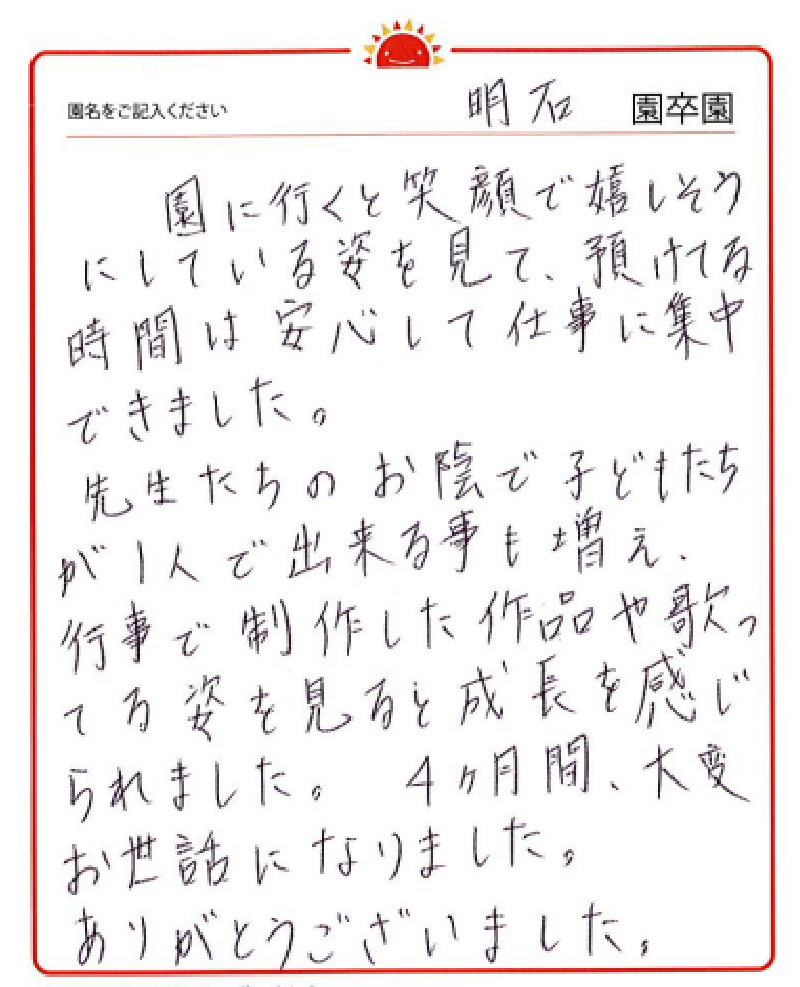 園名をご記入ください 明石 園卒園
園に行くと笑顔で嬉しそう
にしている姿を見て、預けてる
時間は安心して仕事に集中
できました。
先生たちのお陰で子どもたち
が1人で出来る事も増え、
行事で制作した作品や歌っ
てる姿を見ると成長を感じ
られました。 4ヶ月間、大変
お世話になりました。
ありがとうございました。